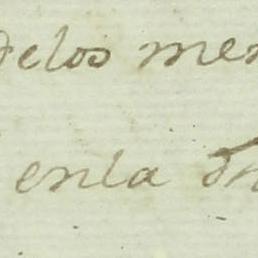 delos men
enla